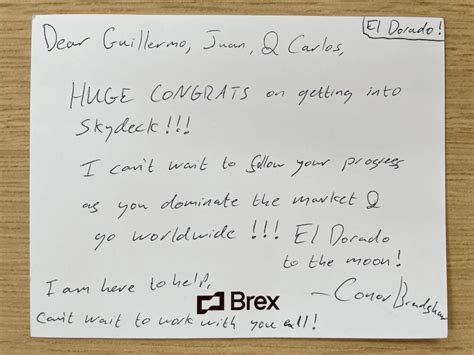 El Dorado!
Dear Guillermo, Juan, & Carlos,
HUGE CONGRATS on getting into
Skydeck!!!
I can't wait to follow your progress
as you dominate the market &
go worldwide!!! El Dorado
to the moon!
I am here to help,
Brex
- Conor Bradshaw
Can't wait to work with you all!